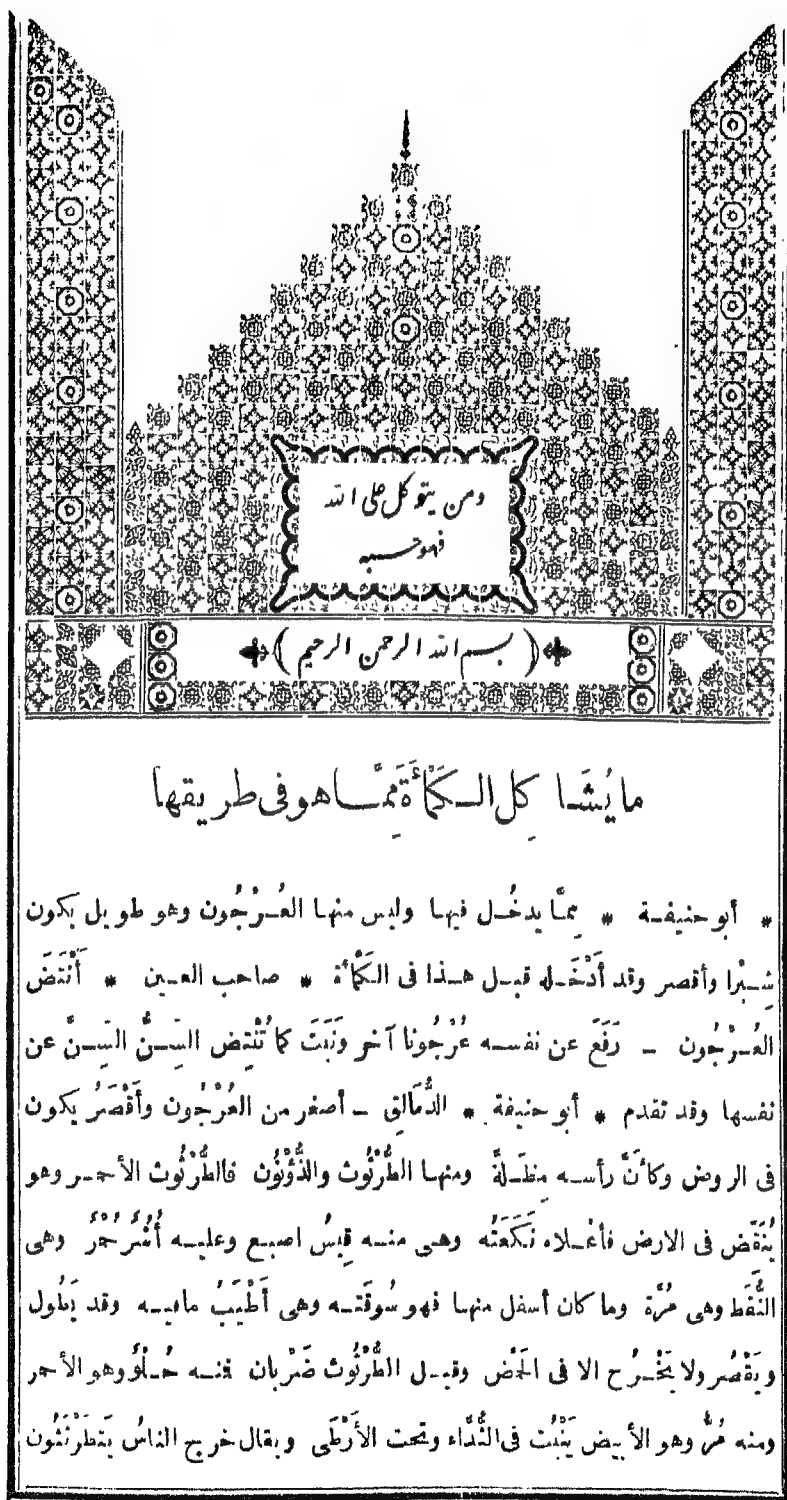 ومن يتوكل على الله
فهو حسبه
(بسم الله الرحمن الرحيم)
ما يُشَاكِل الكَمْأَةَ مِمَّا هو فى طريقها
* أبو حنيفة * مِمَّا يدخُل فيها وليس منها العُرْجُون وهو طويل يكون
شِبْرا وأقصر وقد أَدْخَله قبل هذا فى الكَمْأة * صاحب العين * أَنْتَضَ
العُرْجُون - رَفَعَ عن نفسه عُرْجُونا آخر ونَبَتَ كما تُنْتِض السِّنُّ السِّنَّ عن
نفسها وقد تقدم * أبو حنيفة * الدُّمَالِق - أصغر من العُرْجُون وأَقْصَرُ يكون
فى الروض وكأنَّ رأسه مِظَلةٌ ومنها الطُّرْثُوث والذُّؤْنُون فالطُّرْثُوث الأحمر وهو
يُنَقِّض فى الارض فأعْلاه نَكَعَتُه وهى منه قِيسُ اصبع وعليه أُشَر حُمْرٌ وهى
النُّقَط وهى مُرَّة وما كان أسفل منها فهو سُوقَته وهى أَطْيَبُ مافيه وقد يَطُول
ويَقْصُر ولا يَخْرُج الا فى الحَمْض وقيل الطُّرْثُوث ضَرْبان فمنه حُلْوٌ وهو الأحمر
ومنه مُرٌّ وهو الأبيض يَنْبُت فى الثُّدَّاء وتحت الأَرْطَى ويقال خرج الناسُ يَتَطَرْثَثُون